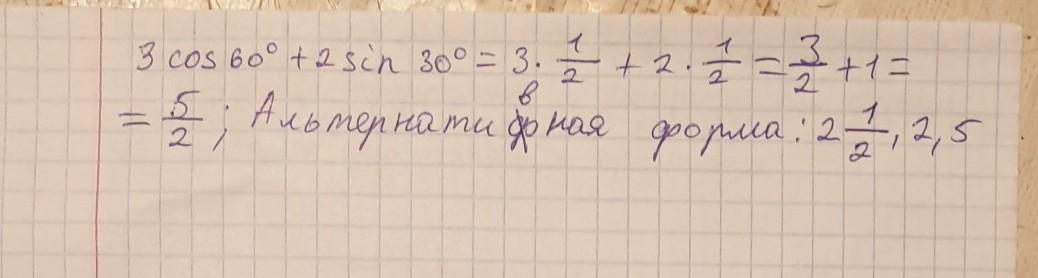 3 cos 60° + 2 sin 30° = 3 · 1/2 + 2 · 1/2 = 3/2 + 1 =
= 5/2 ; Альтернативная форма: 2 1/2, 2,5